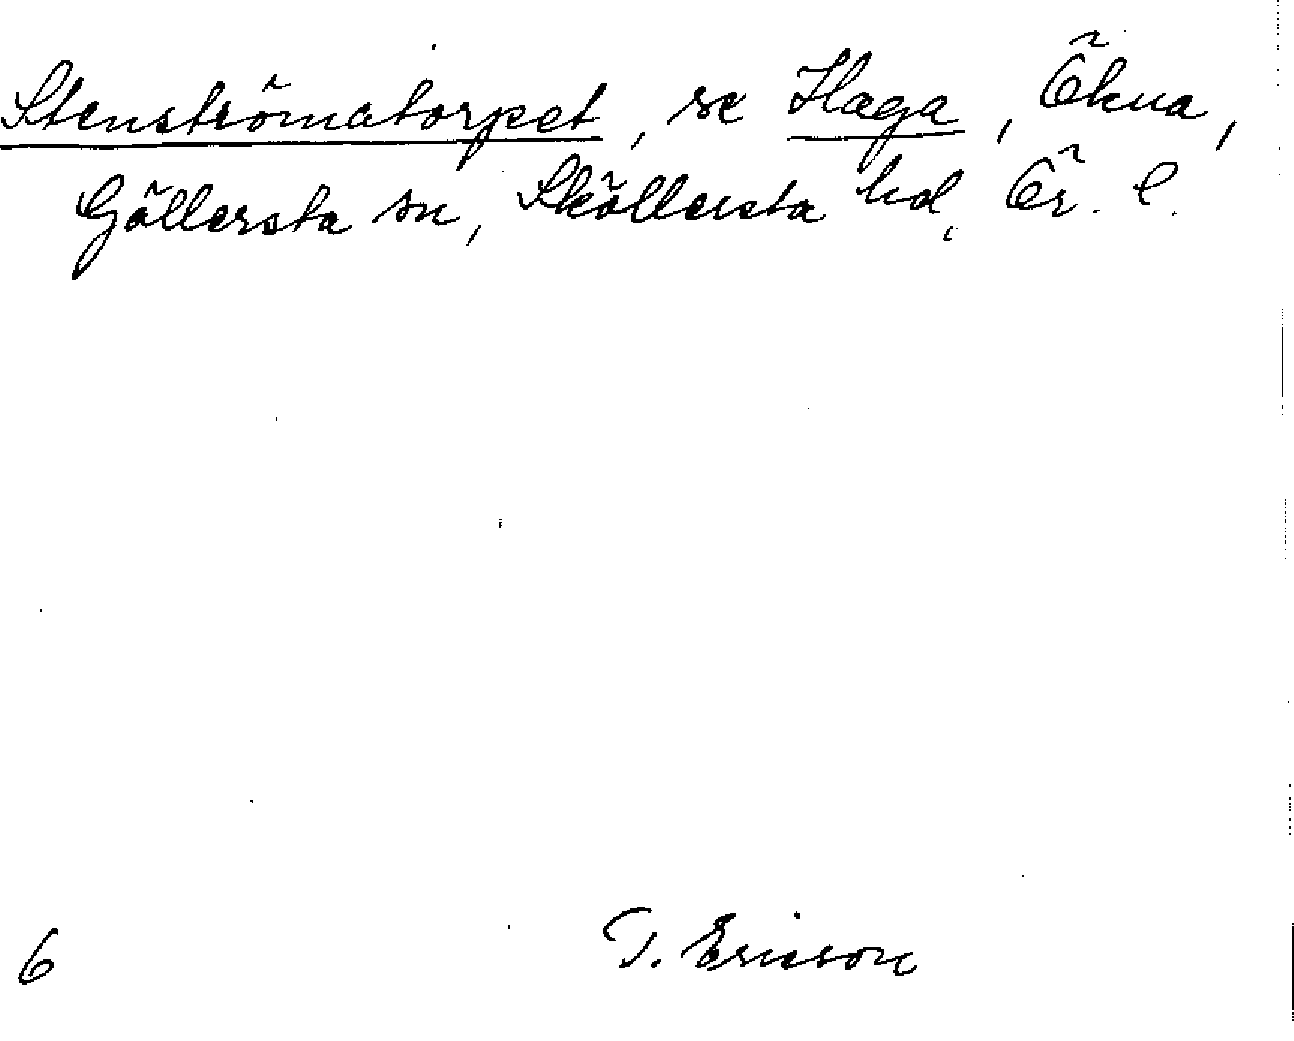 Stenströmatorpet, se Haga, Ökna,
Göllersta sn, Sköllersta hd, Ör. l.
6 T. Ericson